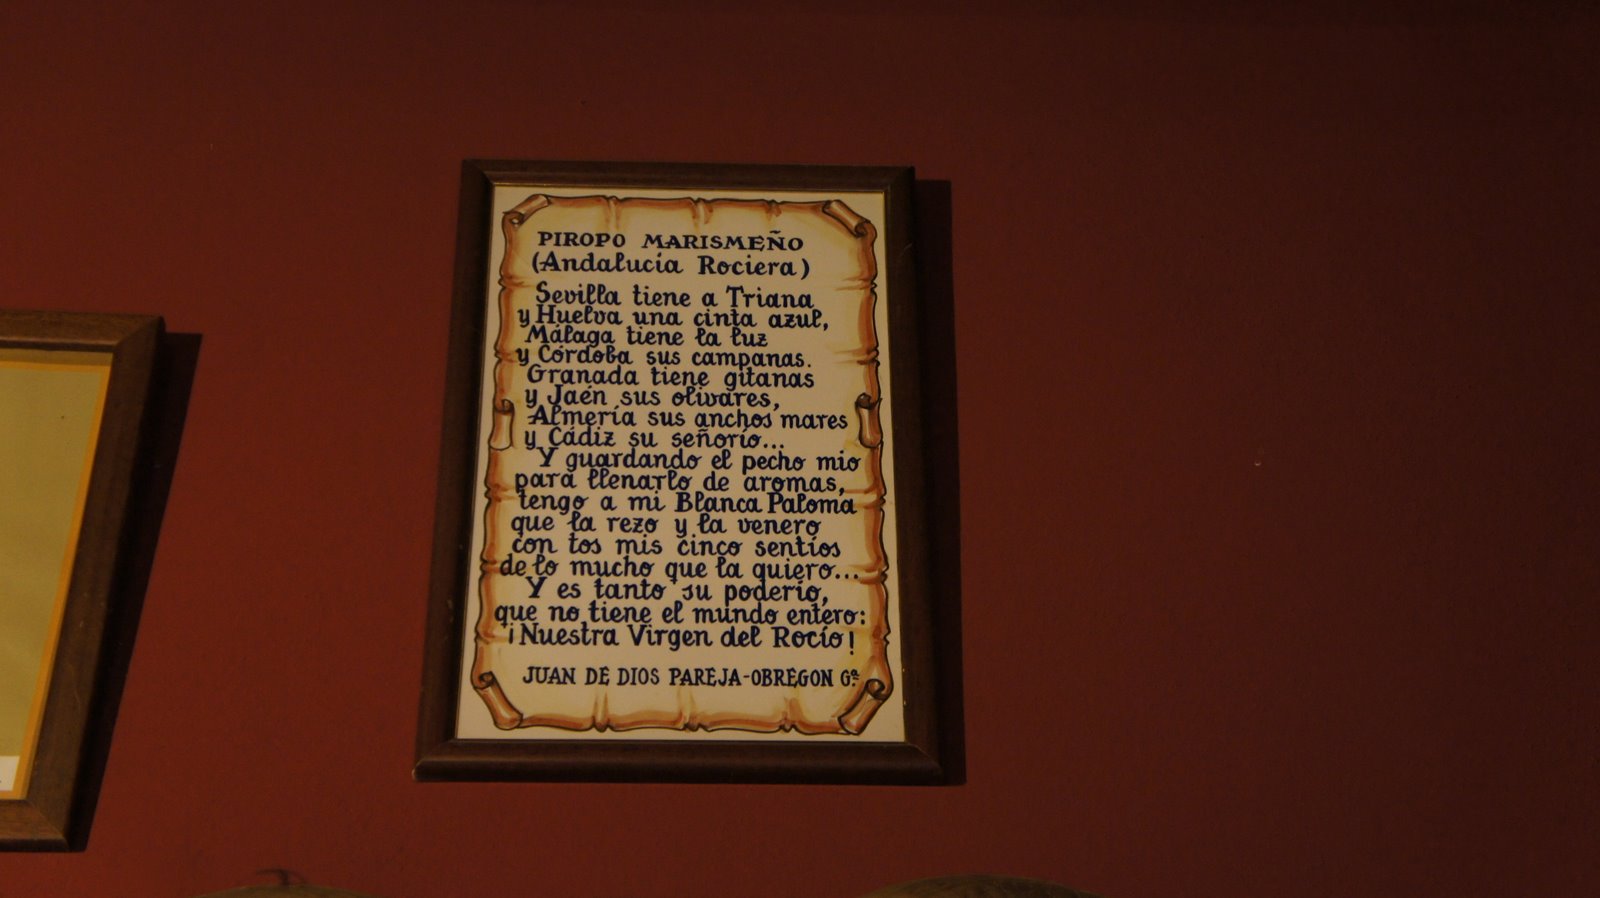 PIROPO MARISMEÑO
(Andalucía Rociera)
Sevilla tiene a Triana
y Huelva una cinta azul,
Málaga tiene la luz
y Córdoba sus campanas.
Granada tiene gitanas
y Jaén sus olivares,
Almería sus anchos mares
y Cádiz su señorío...
Y guardando el pecho mio
para llenarlo de aromas,
tengo a mi Blanca Paloma
que la rezo y la venero
con tos mis cinco sentíos
de lo mucho que la quiero...
Y es tanto su poderío,
que no tiene el mundo entero:
¡Nuestra Virgen del Rocío!
JUAN DE DIOS PAREJA-OBREGON Gª.